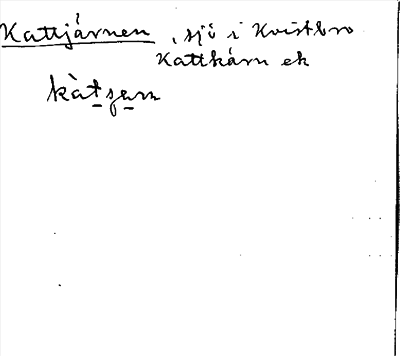 Kattjärnen, sjö i Kvistbro
Kattkärn ek
kàtsęm